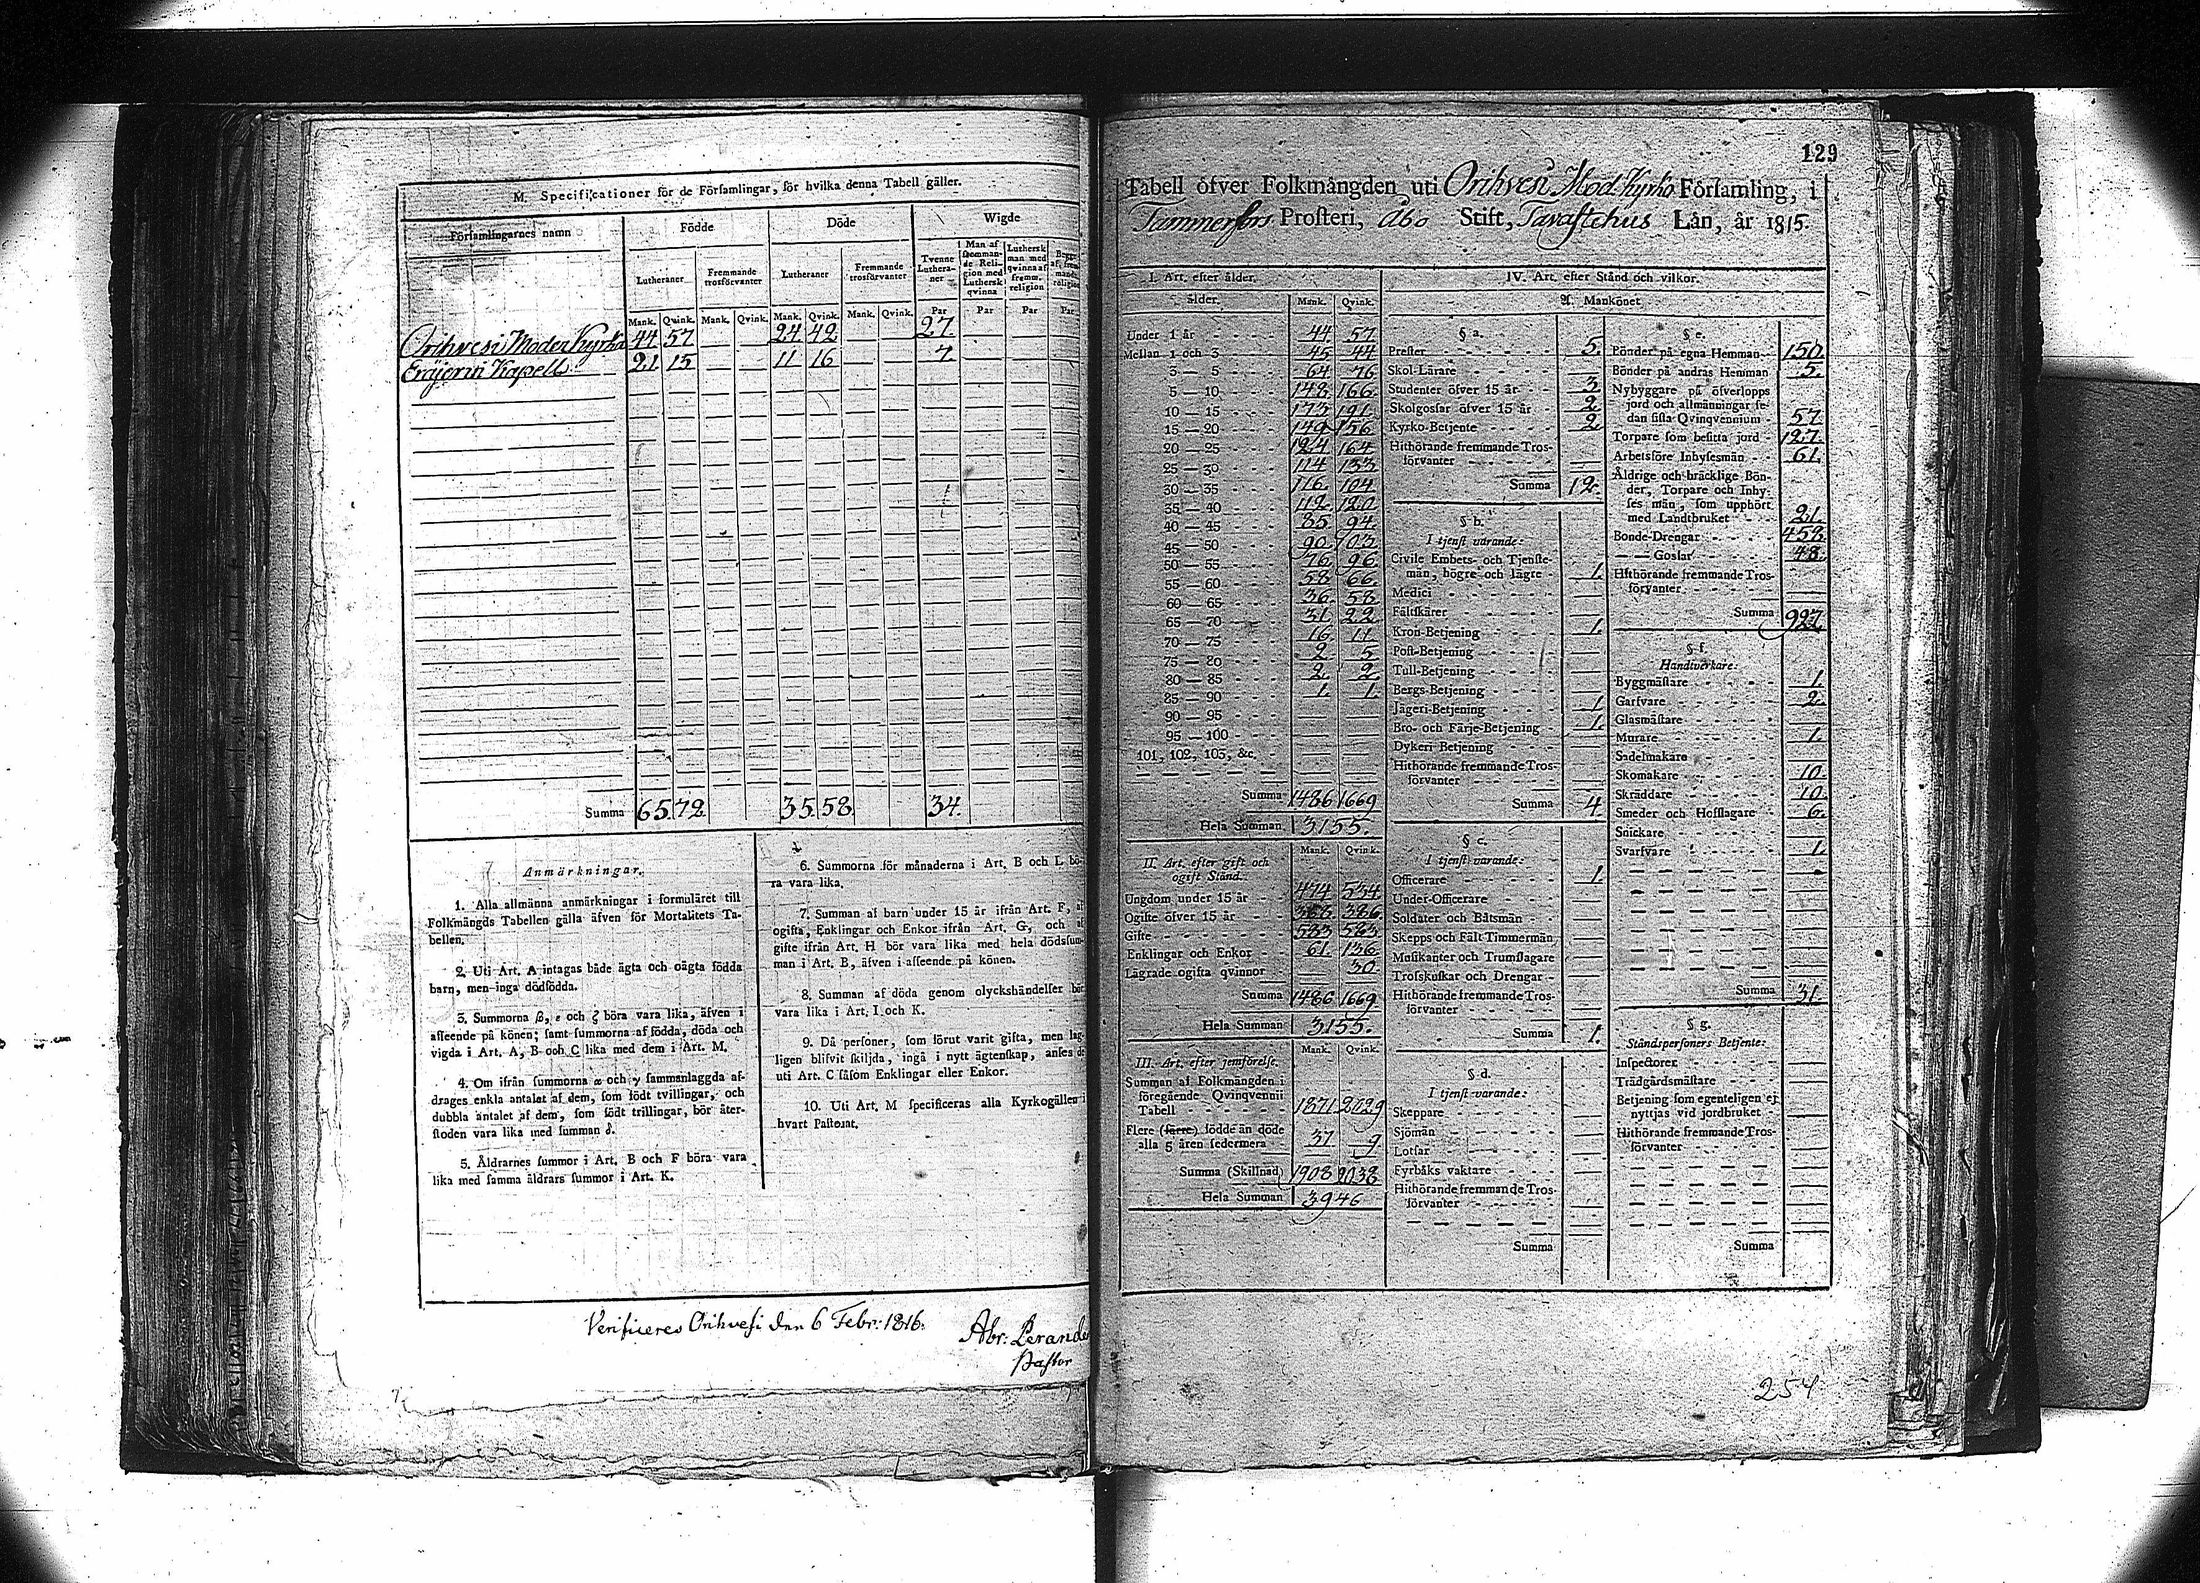 M. Specificationer för de Församlingar, för hvilka denna Tabell gäller.
Församlingarnes namn
Födde
Döde
Wigde
Lutheraner
Fremmande trosförvanter
Lutheraner
Fremmande trosförvanter
Tvenne Lutheraner
Man af fremmande Religion med Luthersk qvinna
Luthersk man med qvinna af fremm. religion
Mank. Qvink. Mank. Qvink. Mank. Qvink. Mank. Qvink. Par Par Par Par
Orihvesi Moder Kyrka 44 57 24 42 27.
Eräjerwi Kapell 21 15 11 16 7
Summa 65 72 35 58 34.
Anmärkningar.
1. Alla allmänna anmärkningar i formuläret till
Folkmängds Tabellen gälla äfven för Mortalitets Ta-
bellen.
2. Uti Art. A intagas både ägta och oägta födda
barn, men inga dödfödda.
3. Summorna β, ε och ζ böra vara lika, äfven i
afseende på könen; samt summorna af födda, döda och
vigda i Art. A, B och C lika med dem i Art. M.
4. Om ifrån summorna α och γ sammanlaggda af-
drages enkla antalet af dem, som födt tvillingar, och
dubbla antalet af dem, som födt trillingar, bör åter-
stoden vara lika med summan δ.
5. Åldrarnes summor i Art. B och F böra vara
lika med samma åldrars summor i Art. K.
6. Summorna för månaderna i Art. B och L bö-
ra vara lika.
7. Summan af barn under 15 år ifrån Art. F, af
ogifta, Enklingar och Enkor ifrån Art. G, och af
gifte ifrån Art. H bör vara lika med hela dödssum-
man i Art. B, äfven i afseende på könen.
8. Summan af döda genom olyckshändelser bör
vara lika i Art. I och K.
9. Då personer, som förut varit gifta, men lag-
ligen blifvit skiljda, ingå i nytt ägtenskap, anses de
uti Art. C såsom Enklingar eller Enkor.
10. Uti Art. M specificeras alla Kyrkogällen i
hvart Pastorat.
Verificeres Orihvesi den 6 Febr: 1816.
Abr: Perande
Pastor
129
Tabell öfver Folkmängden uti Orihvesi Mod. Kyrko Församling, i
Tammerfors Prosteri, Åbo Stift, Tavastehus Län, år 1815.
I. Art. efter ålder.
Ålder. Mank. Qvink.
Under 1 år 44 57
Mellan 1 och 3 45 44
3 — 5 64 76
5 — 10 148 166
10 — 15 173 191
15 — 20 149 156
20 — 25 124 164
25 — 30 114 133
30 — 35 116 104
35 — 40 112 120
40 — 45 85 94
45 — 50 90 103
50 — 55 76 96
55 — 60 58 66
60 — 65 36 58
65 — 70 31 22
70 — 75 16 11
75 — 80 2 5
80 — 85 2 2
85 — 90 1 1
90 — 95
95 — 100
101, 102, 103, &c.
Summa 1486 1669
Hela Summan 3155.
II. Art. efter gift och
ogift Stånd.
Mank. Qvink.
Ungdom under 15 år 474 534
Ogifte öfver 15 år 368 386
Gifte 583 583
Enklingar och Enkor 61. 136
Lägrade ogifta qvinnor 30
Summa 1486 1669
Hela Summan 3155.
III. Art. efter jemförelse.
Mank. Qvink.
Summan af Folkmängden i
föregående Qvinqvennii
Tabell 1871 2029
Flere (färre) födde än döde
alla 5 åren sedermera 37 9
Summa (Skillnad) 1908 2038
Hela Summan 3946
IV. Art. efter Stånd och vilkor.
A. Mankönet
§ a.
Prester 5.
Skol-Lärare
Studenter öfver 15 år 3
Skolgossar öfver 15 år 2
Kyrko-Betjente 2
Hithörande fremmande Tros-
förvanter
Summa 12.
§ b.
I tjenst varande:
Civile Embets- och Tjenste-
män, högre och lägre 1.
Medici
Fältskärer
Kron-Betjening 1.
Post-Betjening
Tull-Betjening
Bergs-Betjening
Jägeri-Betjening 1
Bro- och Färje-Betjening 1.
Dykeri Betjening
Hithörande fremmande Tros-
förvanter
Summa 4.
§ c.
I tjenst varande:
Officerare 1.
Under-Officerare
Soldater och Båtsmän
Skepps och Fält Timmermän
Musikanter och Trumslagare
Trosskuskar och Drengar
Hithörande fremmande Tros-
förvanter
Summa 1.
§ d.
I tjenst varande:
Skeppare
Sjömän
Lotsar
Fyrbåks vaktare
Hithörande fremmande Tros-
förvanter
Summa
§ e.
Bönder på egna Hemman 150
Bönder på andras Hemman 5.
Nybyggare på öfverlopps
jord och allmänningar se-
dan sista Qvinqvennium 57
Torpare som besitta jord 127.
Arbetsföre Inhysesmän 61.
Åldrige och bräcklige Bön-
der, Torpare och Inhy-
ses män, som upphört
med Landtbruket 21.
Bonde-Drengar 458
— — Gossar 48.
Hithörande fremmande Tros-
förvanter
Summa 927
§ f.
Handtverkare:
Byggmästare 1.
Garfvare 2.
Glasmästare
Murare 1.
Sadelmakare
Skomakare 10.
Skräddare 10.
Smeder och Hofslagare 6.
Snickare
Svarfvare 1.
Summa 31.
§ g.
Ståndspersoners Betjente:
Inspectorer
Trädgårdsmästare
Betjening som egenteligen ej
nyttjas vid jordbruket
Hithörande fremmande Tros-
förvanter
Summa
254